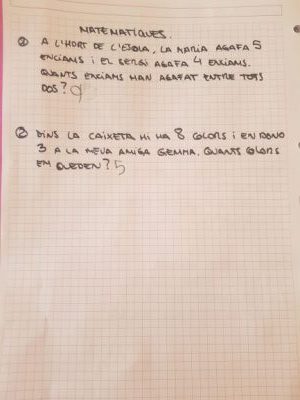 MATEMATIQUES.
① A L'HORT DE L'ESOLA, LA MARIA AGAFA 5
ENCIAMS I EL SERGI AGAFA 4 ENCIAMS.
QUANTS ENCIAMS HAN AGAFAT ENTRE TOTS
DOS? 9
② DINS LA CAIXETA HI HA 8 COLORS I EN DONO
3 A LA MEVA AMIGA GEMMA. QUANTS COLORS
EM QUEDEN? 5